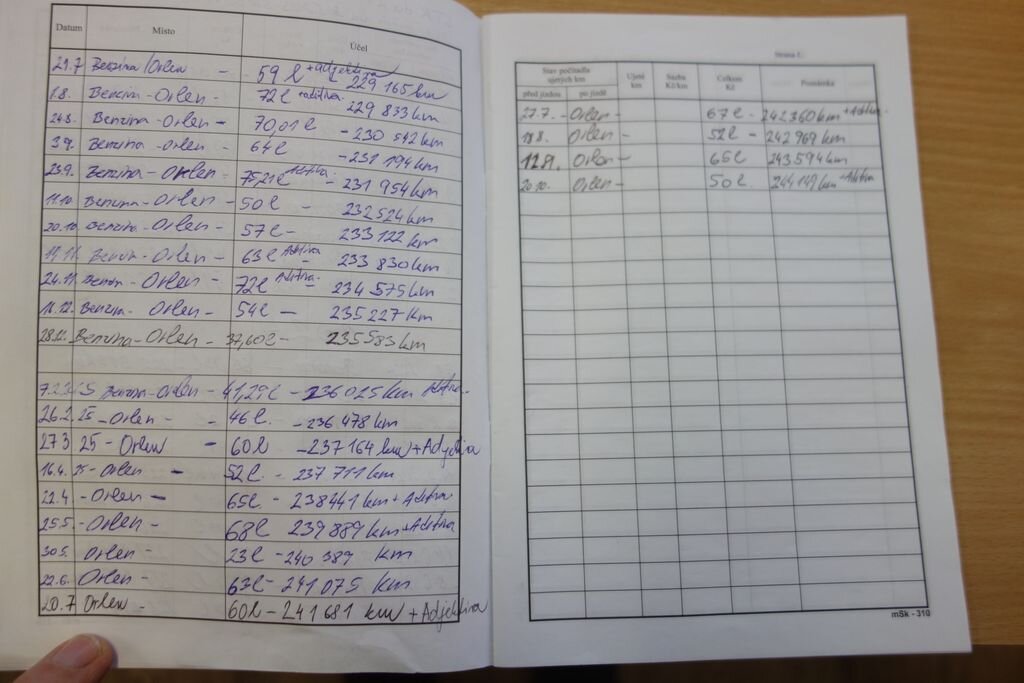 Datum Místo Účel
29.7 Benzina/Orlen - 59 l + adjektiva 229 165 km
1.8. Benzina-Orlen - 72 l + aditiva 229 833 km
24.8. Benzina-Orlen - 70,01 l - 230 542 km
3.9. Benzina-Orlen - 64 l - 231 194 km
23.9. Benzina-Orlen - 75,21 l Aditiva - 231 954 km
11.10. Benzina-Orlen - 50 l - 232 524 km
20.10 Benzina-Orlen - 57 l - 233 122 km
Orlen - 63 l Aditiva - 233 830 km
24.11. Orlen - 72 l Aditiva - 234 575 km
Benzin- Orlen - 54 l - 235 227 km
Benzina-Orlen - 37,60 l - 235 583 km
Benzina-Orlen - 41,29 l - 236 025 km Aditiva-
26.2. 25 - Orlen - 46 l - 236 478 km
27.3 25 - Orlen - 60 l - 237 164 km + Adjektiva
16.4. 25 - Orlen - 52 l - 237 711 km
22.4. - Orlen - 65 l - 238441 km + Aditiva
25.5. - Orlen - 68 l 239 889 km + Aditiva
30.5. Orlen - 23 l - 240 389 km
22.6. Orlen - 63 l - 241 075 km
20.7 Orlen - 60 l - 241 681 km + Adjektiva
Strana č.
Stav počitadla ujetých km Ujeté km Sazba Kč/km Celkem Kč Poznámka
před jízdou po jízdě
27.7. - Orlen - 67 l - 242 360 km + Aditiva
Orlen - 52 l - 242 969 km
Orlen - 65 l 243 594 km
20.10. Orlen - 50 l. 244 149 km + Aditiva
mSk - 310